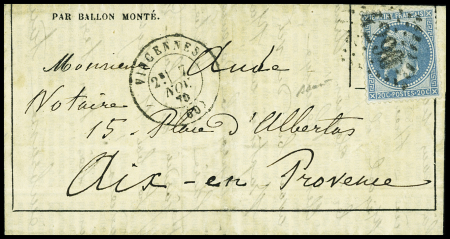 PAR BALLON MONTÉ.
VINCENNES
2E
7
NOV.
70
(60)
Monsieur Aude
Notaire
15, Place d'Albertas
Aix-en Provence
20C POSTES 20C